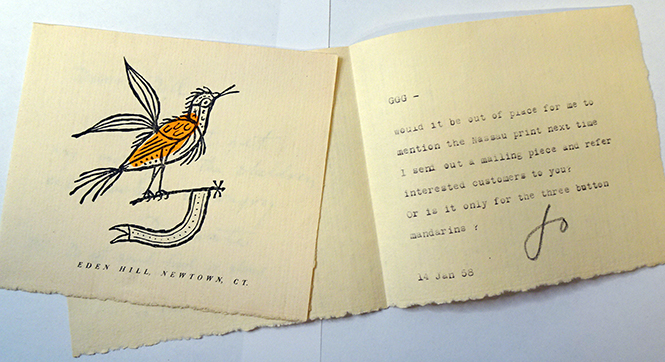 EDEN HILL, NEWTOWN, CT.
GGG -
would it be out of place for me to
mention the Nassau print next time
I send out a mailing piece and refer
interested customers to you?
Or is it only for the three button
mandarins ?
Jo
14 Jan 58